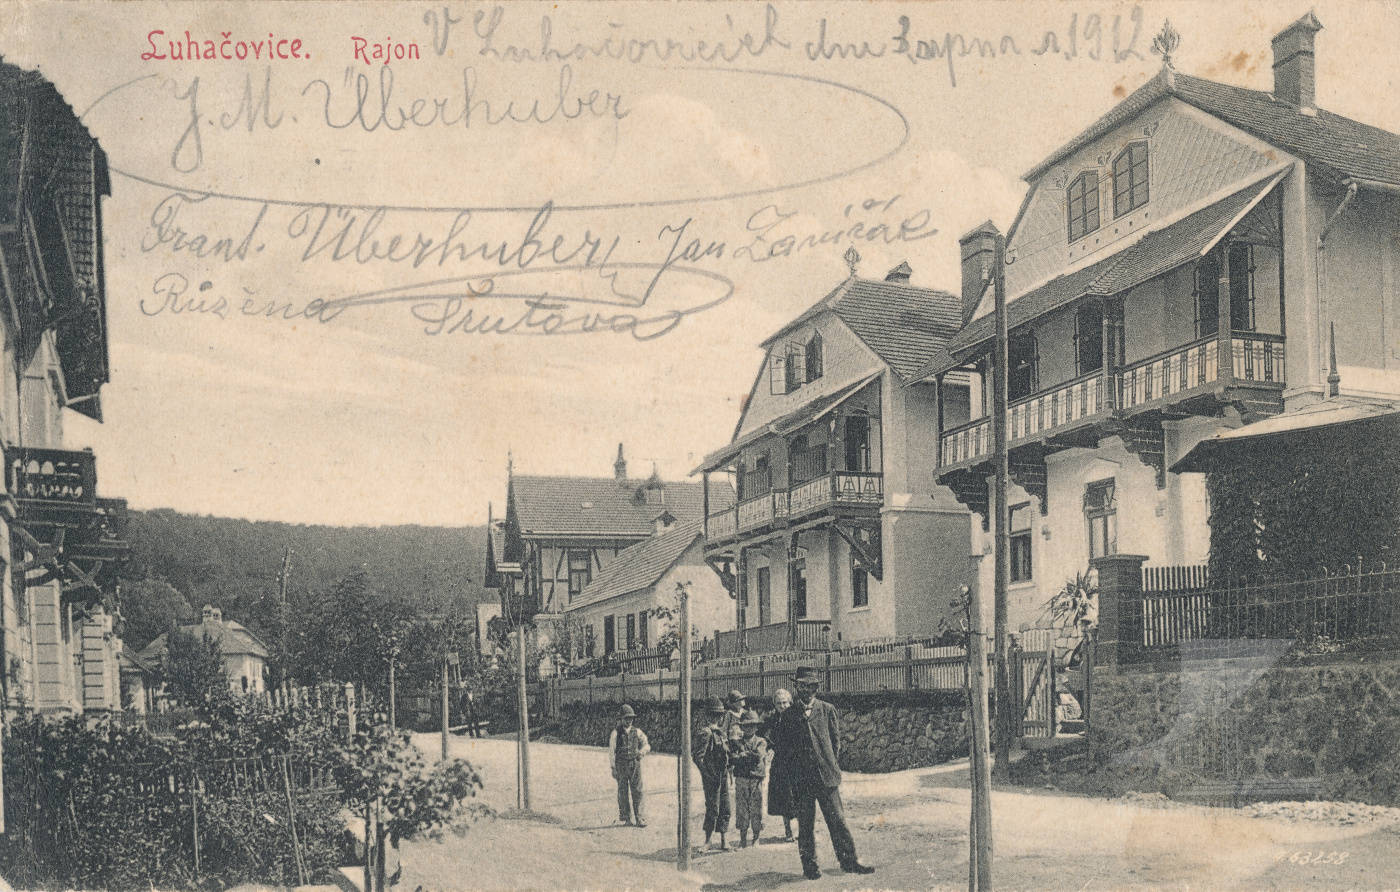 Luhačovice. Rajon
V Luhačovicích dne srpna r. 1912
J. M. Überhuber
Frant. Überhuber Jan
Růžěna Šrutova
63258